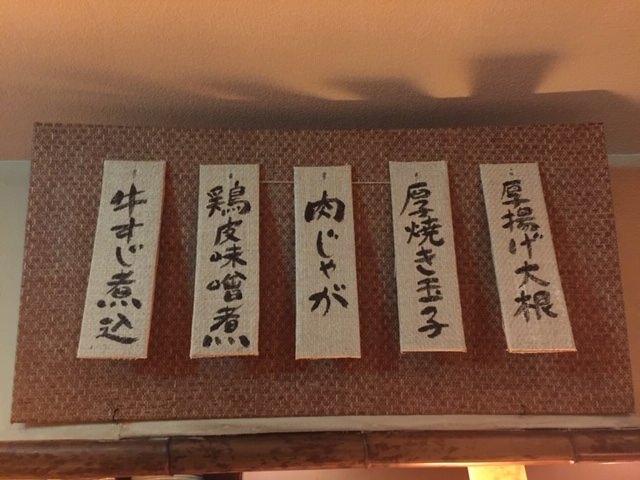 厚揚げ大根
厚焼き玉子
肉じゃが
鶏皮味噌煮
牛すじ煮込